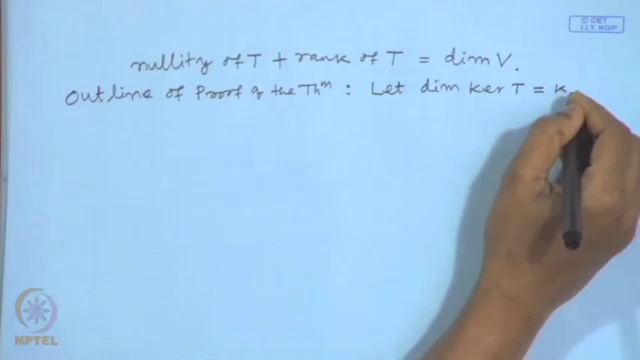 © CET
I.I.T. KGP
nullity of T + rank of T = dim V.
Outline of Proof of the Thm : Let dim ker T = k
NPTEL